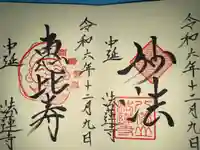 令和六年十二月九日
妙法
中延
法蓮寺
令和六年十二月九日
恵比寿
中延
法蓮寺